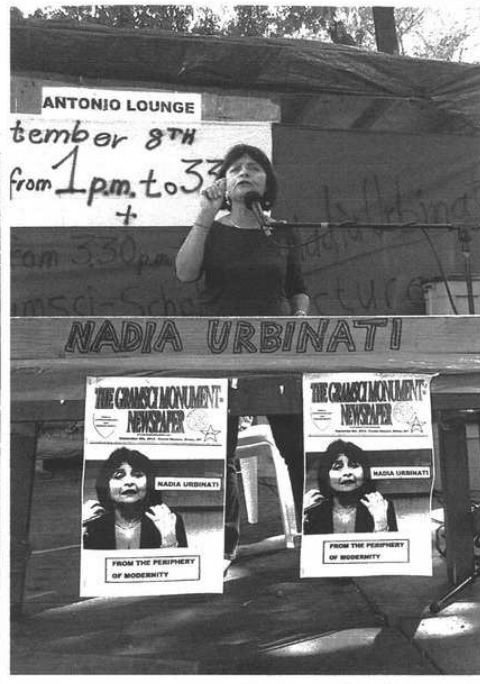 ANTONIO LOUNGE
tember 8TH
from 1 p.m. to 33
+
from 3.30 p.m.
Nadia Urbina
amsci-
cture
NADIA URBINATI
THE GRAMSCI MONUMENT-
NEWSPAPER
NADIA URBINATI
FROM THE PERIPHERY
OF MODERNITY
THE GRAMSCI MONUMENT-
NEWSPAPER
NADIA URBINATI
FROM THE PERIPHERY
OF MODERNITY